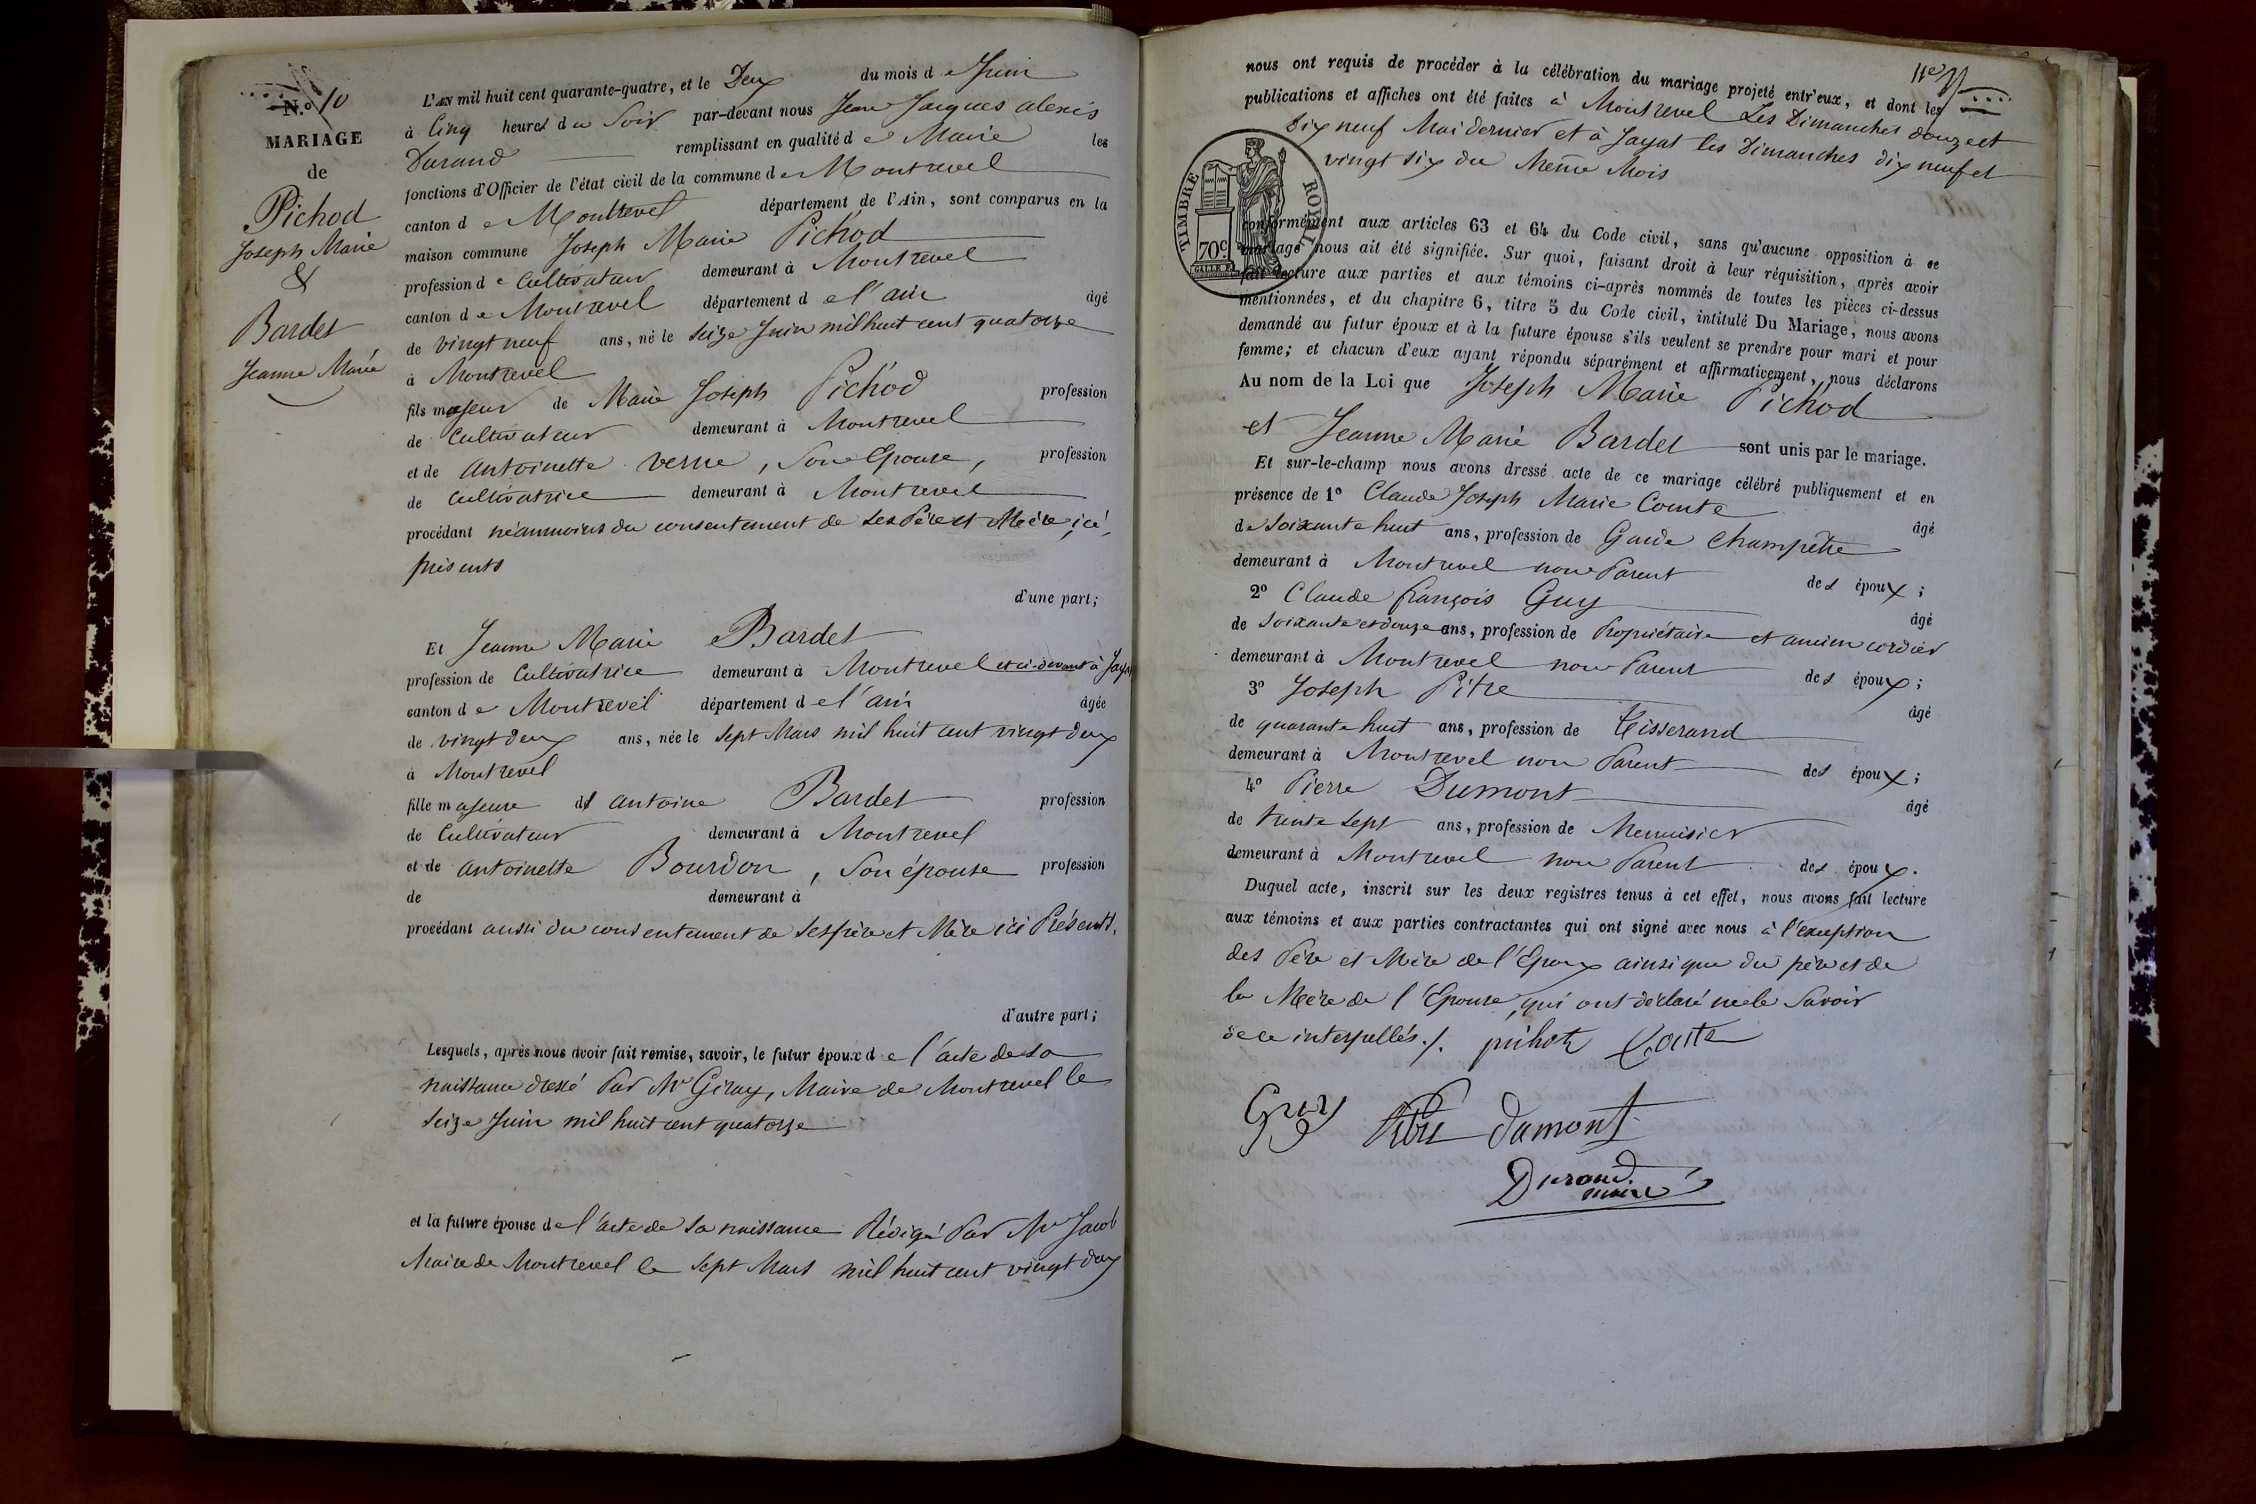 N.º 10
MARIAGE
de
Pichod
Joseph Marie
&
Bardet
Jeanne Marie
L'AN mil huit cent quarante-quatre, et le Deux du mois de Juin
à Cinq heures du Soir par-devant nous Jean Jacques alexis
Durand remplissant en qualité de Maire les
fonctions d'Officier de l'état civil de la commune de Montrevel
canton de Montrevel département de l'Ain, sont comparus en la
maison commune Joseph Marie Pichod
profession de Cultivateur demeurant à Montrevel
canton de Montrevel département de l'ain âgé
de vingt neuf ans, né le seize Juin mil huit cent quatorze
à Montrevel
fils majeur de Marie Joseph Pichod profession
de Cultivateur demeurant à Montrevel
et de Antoinette verne, Son Epouse, profession
de Cultivatrice demeurant à Montrevel
procédant néanmoins du consentement de ses Père et Mère, ici,
présents
d'une part;
Et Jeanne Marie Bardet
profession de Cultivatrice demeurant à Montrevel et ci-devant à Jayat
canton de Montrevel département de l'ain âgée
de vingt deux ans, née le sept Mars mil huit cent vingt deux
à Montrevel
fille majeure d' antoine Bardet profession
de Cultivateur demeurant à Montrevel
et de antoinette Bourdon, Son épouse profession
de demeurant à
procédant aussi du consentement de ses père et Mère ici Présents,
d'autre part;
Lesquels, après nous avoir fait remise, savoir, le futur époux de l'acte de sa
naissance dressé Par Mr Giray, Maire de Montrevel le
seize Juin mil huit cent quatorze
et la future épouse de l'acte de sa naissance Rédigé Par Mr Jacob
Maire de Montrevel le sept Mars mil huit cent vingt deux
11e
nous ont requis de procéder à la célébration du mariage projeté entr'eux, et dont les
publications et affiches ont été faites à Montrevel Les Dimanches douze et
dix neuf Mai dernier et à Jayat les Dimanches dix neuf et
vingt six du Même Mois
TIMBRE ROYAL
70c
conformément aux articles 63 et 64 du Code civil, sans qu'aucune opposition à ce
mariage nous ait été signifiée. Sur quoi, faisant droit à leur réquisition, après avoir
fait lecture aux parties et aux témoins ci-après nommés de toutes les pièces ci-dessus
mentionnées, et du chapitre 6, titre 5 du Code civil, intitulé Du Mariage, nous avons
demandé au futur époux et à la future épouse s'ils veulent se prendre pour mari et pour
femme; et chacun d'eux ayant répondu séparément et affirmativement, nous déclarons
Au nom de la Loi que Joseph Marie Pichod
et Jeanne Marie Bardet sont unis par le mariage.
Et sur-le-champ nous avons dressé acte de ce mariage célébré publiquement et en
présence de 1º Claude Joseph Marie Comte âgé
de soixante huit ans, profession de Garde Champêtre
demeurant à Montrevel non Parent des époux;
2º Claude françois Guy âgé
de soixante et douze ans, profession de Propriétaire et ancien cordier
demeurant à Montrevel non Parent des époux;
3º Joseph Pitre âgé
de quarante huit ans, profession de Tisserand
demeurant à Montrevel non Parent des époux;
4º Pierre Dumont âgé
de trente sept ans, profession de Menuisier
demeurant à Montrevel non Parent des époux.
Duquel acte, inscrit sur les deux registres tenus à cet effet, nous avons fait lecture
aux témoins et aux parties contractantes qui ont signé avec nous à l'exception
des Père et Mère de l'Epoux ainsi que du père et de
la Mère de l'Epouse, qui ont déclaré ne le Savoir
de ce interpellés./.
Guy Pitre Dumont
Durand
maire